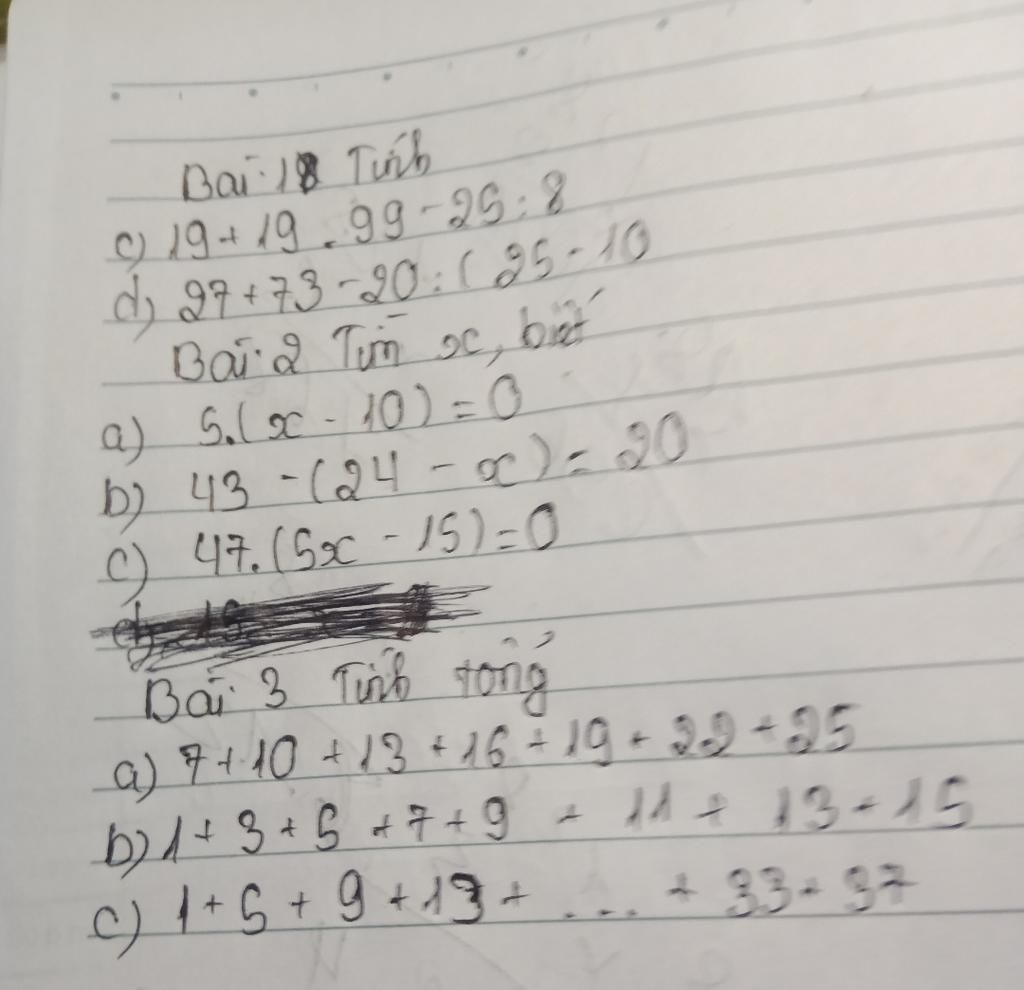 Bài 18 Tính
c) 19 + 19 . 99 - 25 : 8
d) 27 + 73 - 20 : ( 25 - 10
Bài 2 Tìm x, biết
a) 5.(x - 10) = 0
b) 43 - (24 - x) = 20
c) 47.(5x - 15) = 0
Bài 3 Tính tổng
a) 7 + 10 + 13 + 16 + 19 + 22 + 25
b) 1 + 3 + 5 + 7 + 9 + 11 + 13 + 15
c) 1 + 5 + 9 + 13 + ... + 33 + 37